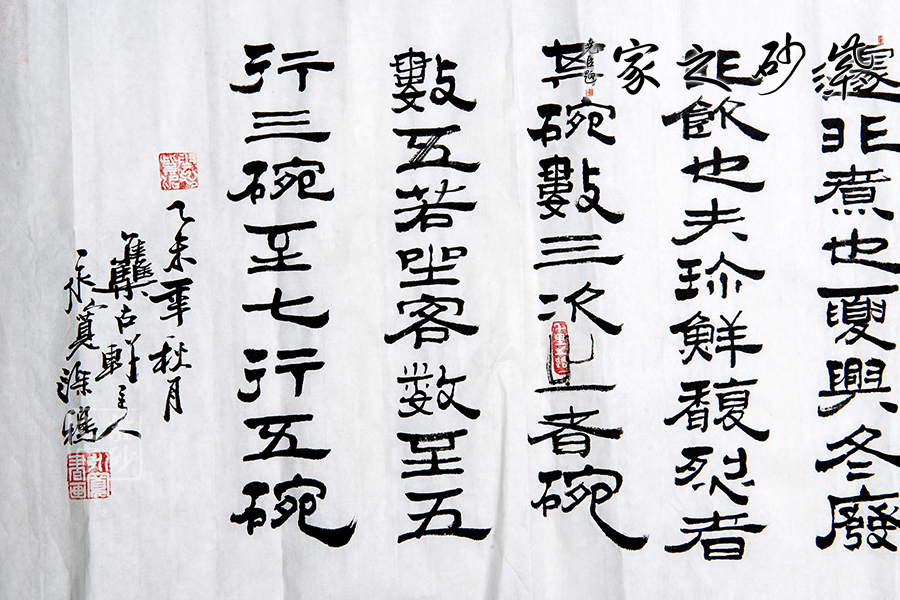 遽非煮也夏興冬廢
非飲也夫珍鮮馥烈者
其碗數三次之者碗
數五若坐客数至五
行三碗至七行五碗
乙未年秋月
雧古軒主人
永寬涂鴉
砂家